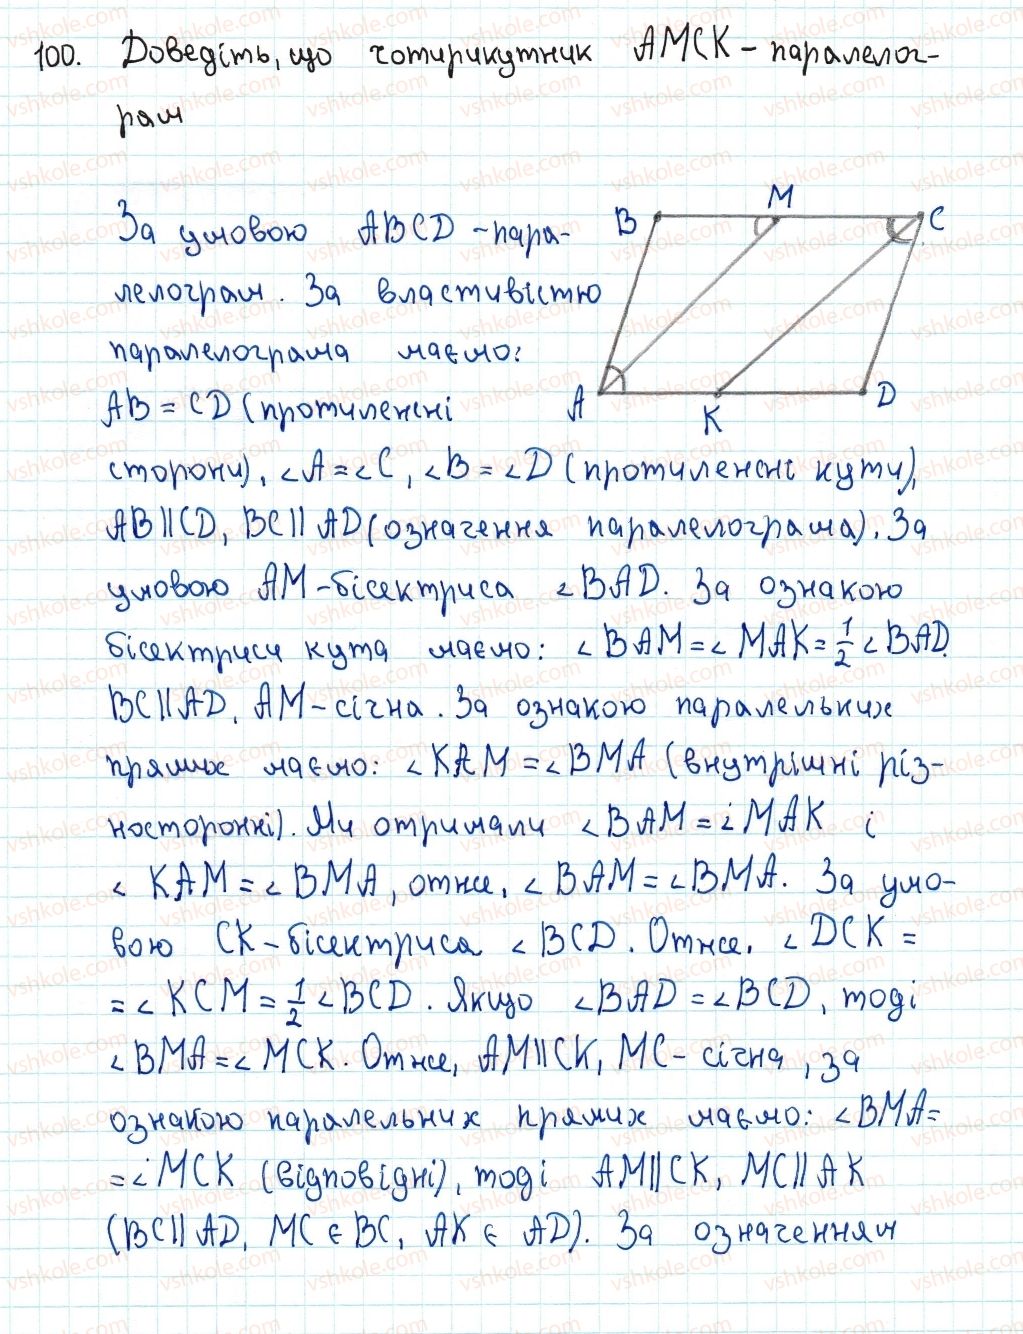 100. Доведіть, що чотирикутник AMCK - паралелог-
рам
За умовою ABCD - пара-
лелограм. За властивістю
паралелограма маємо:
AB = CD (протилежні
сторони), ∠A = ∠C, ∠B = ∠D (протилежні кути),
AB || CD, BC || AD (означення паралелограма). За
умовою AM - бісектриса ∠BAD. За ознакою
бісектриси кута маємо: ∠BAM = ∠MAK = 1/2 ∠BAD.
BC || AD, AM - січна. За ознакою паралельних
прямих маємо: ∠KAM = ∠BMA (внутрішні різ-
носторонні). Ми отримали ∠BAM = ∠MAK і
∠KAM = ∠BMA, отже, ∠BAM = ∠BMA. За умо-
вою CK - бісектриса ∠BCD. Отже, ∠DCK =
= ∠KCM = 1/2 ∠BCD. Якщо ∠BAD = ∠BCD, тоді
∠BMA = ∠MCK. Отже, AM || CK, MC - січна, за
ознакою паралельних прямих маємо: ∠BMA =
= ∠MCK (відповідні), тоді AM || CK, MC || AK
(BC || AD, MC ∈ BC, AK ∈ AD). За означенням
B
M
C
A
K
D
vshkole.com